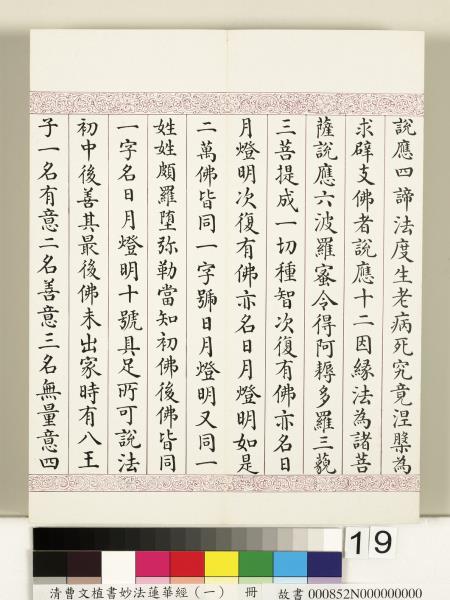 說應四諦法度生老病死究竟涅槃為
求辟支佛者說應十二因緣法為諸菩
薩說應六波羅蜜令得阿耨多羅三藐
三菩提成一切種智次復有佛亦名日
月燈明次復有佛亦名日月燈明如是
二萬佛皆同一字號日月燈明又同一
姓姓頗羅墮弥勒當知初佛後佛皆同
一字名日月燈明十號具足所可說法
初中後善其最後佛未出家時有八王
子一名有意二名善意三名無量意四
19
清曹文植書妙法蓮華經（一） 冊 故書 000852N000000000